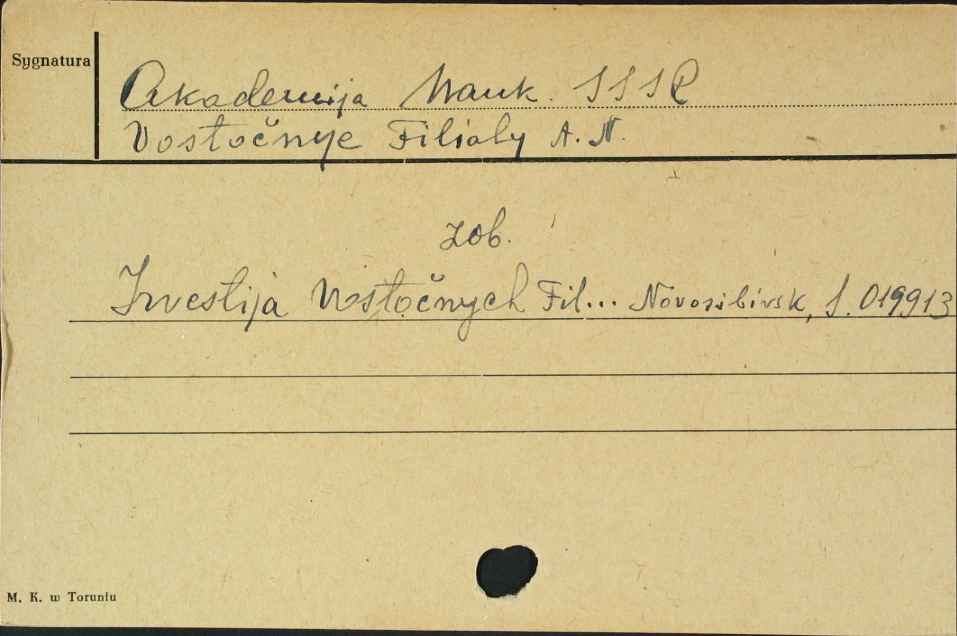 Sygnatura
Akademija Nauk. SSSR
Vostočnye Filialy A. N.
zob.
Izvestija Vostočnych Fil... Novosibirsk, S. 019913
M. K. w Toruniu